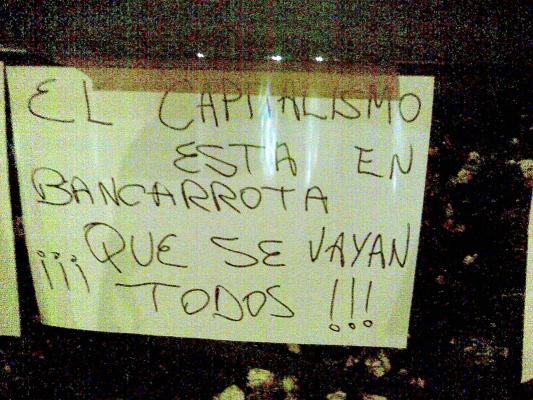 EL CAPITALISMO
ESTA EN
BANCARROTA
¡¡¡QUE SE VAYAN
TODOS!!!